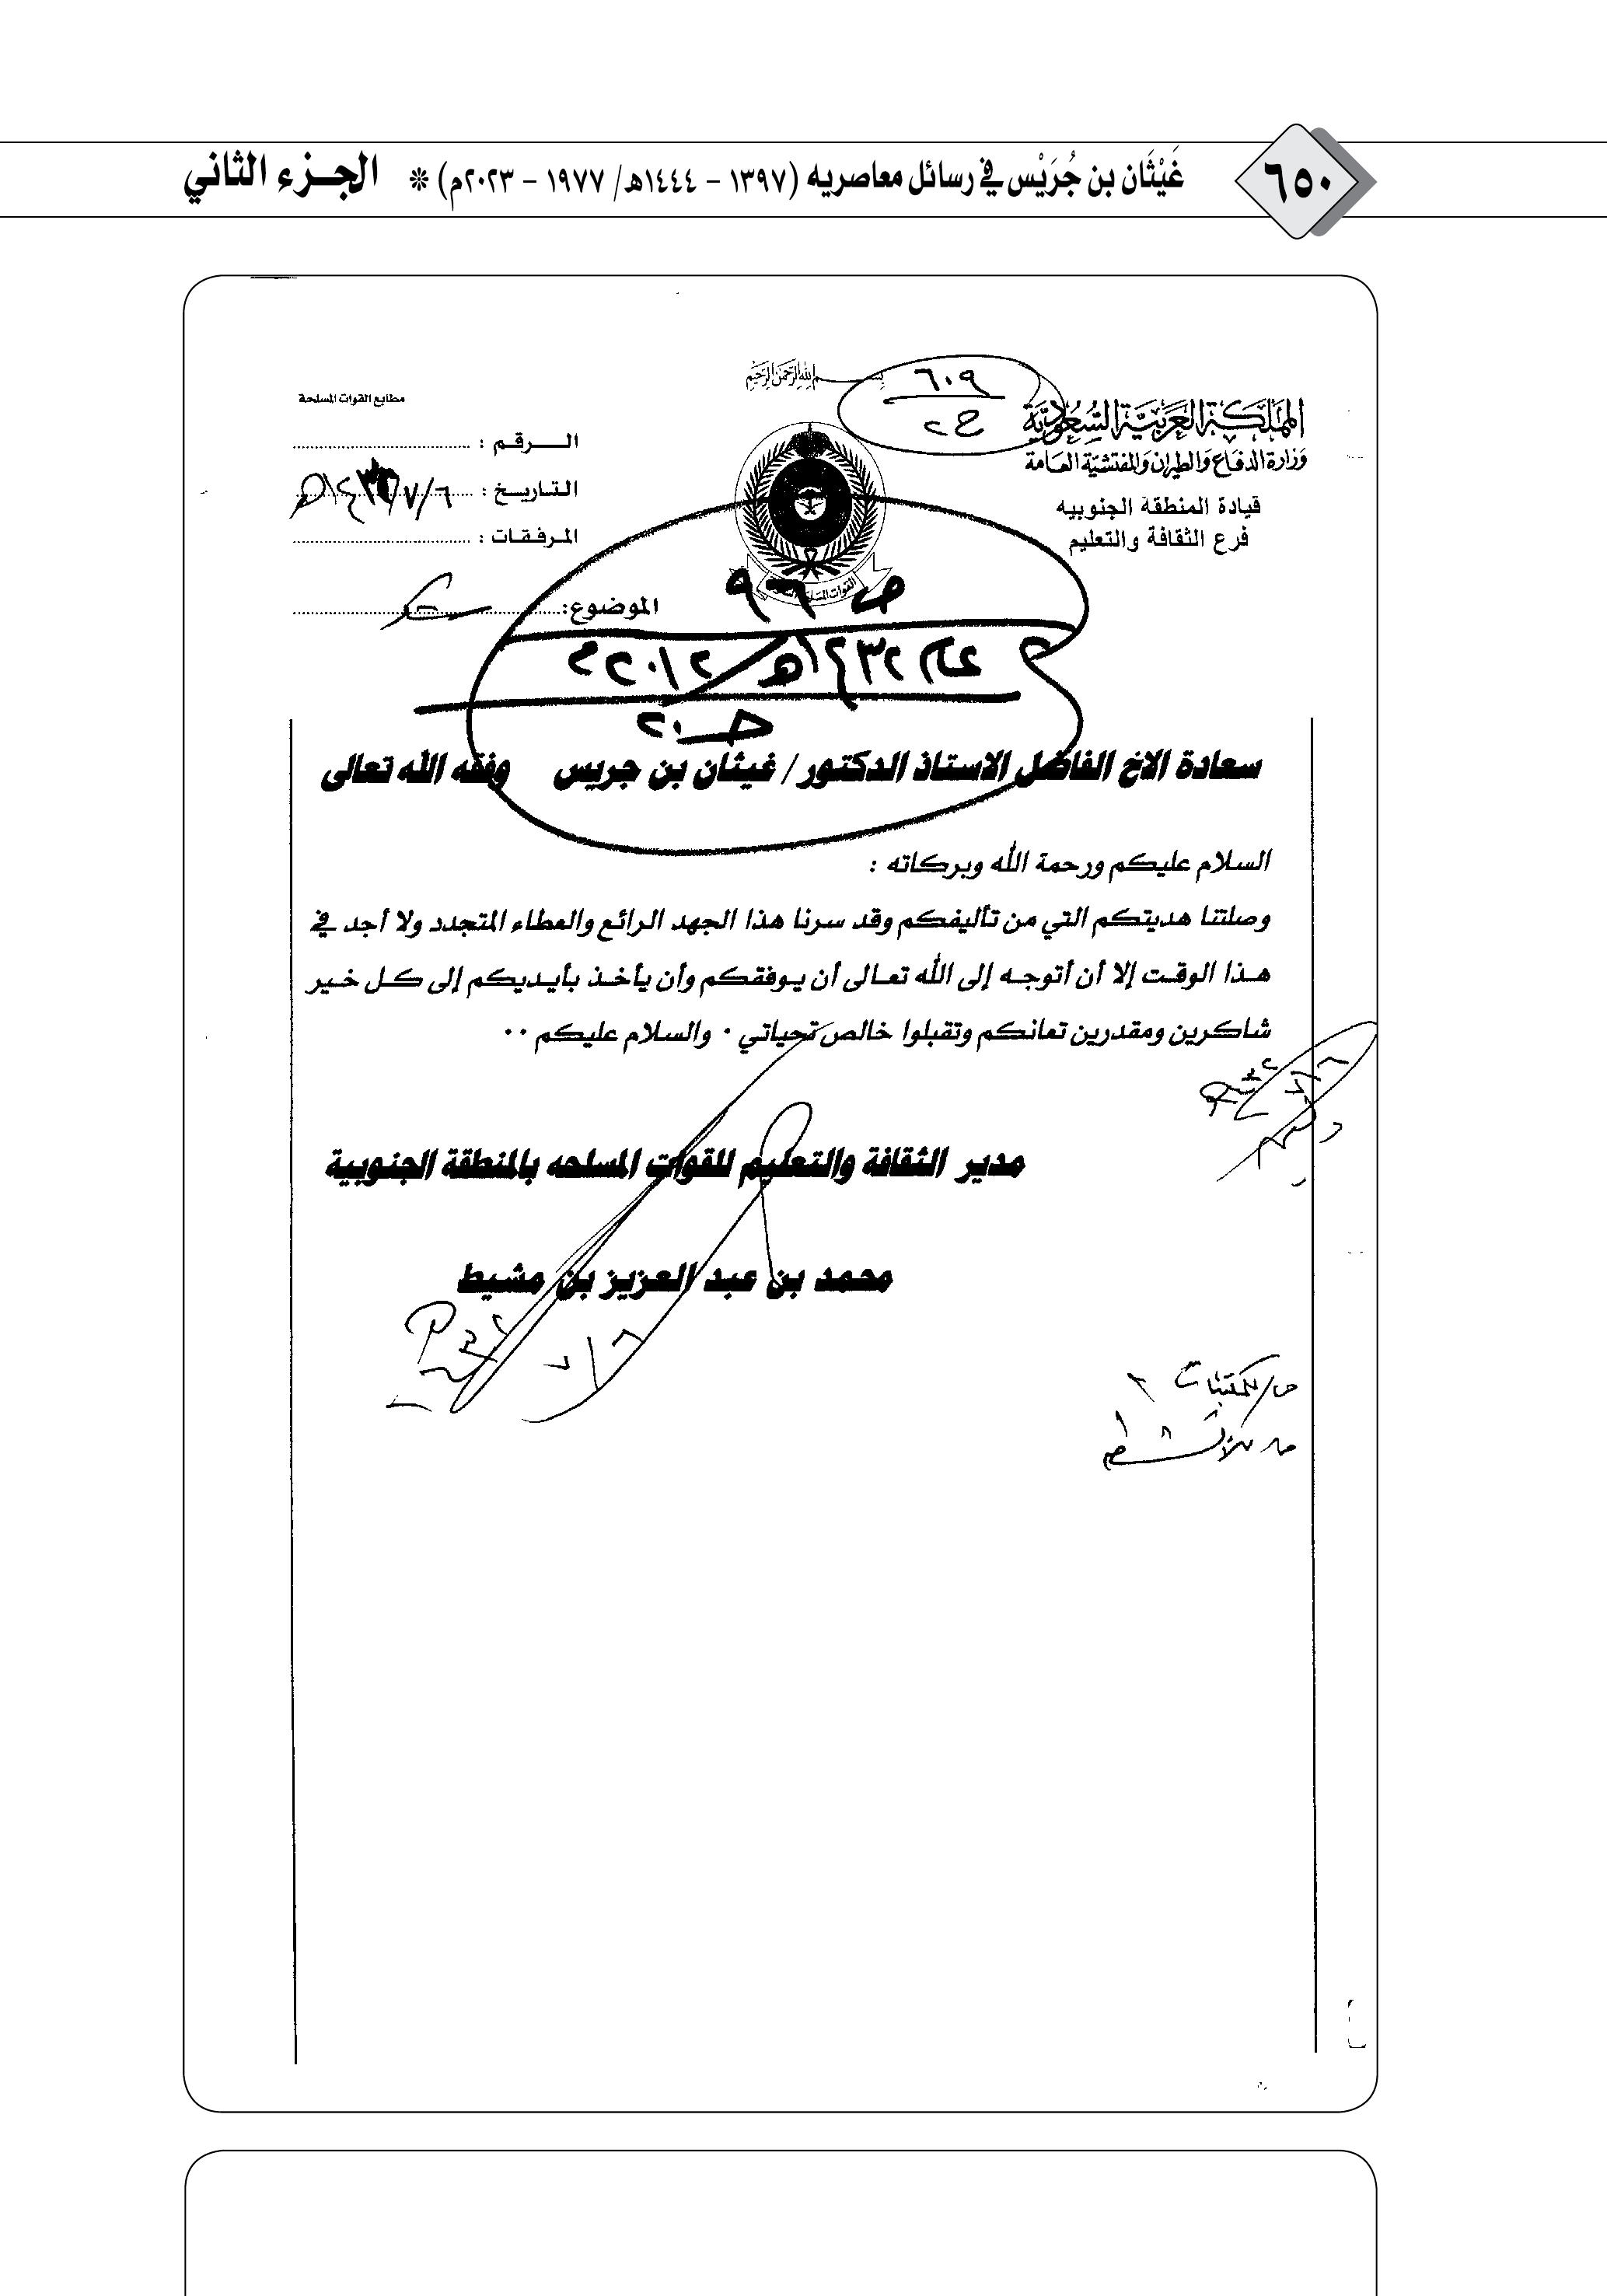 ٦٥٠
غَيْثَان بن جُرَيْس في رسائل معاصريه (١٣٩٧ – ١٤٤٤هـ/ ١٩٧٧ – ٢٠٢٣م) * الجزء الثاني
بسم الله الرحمن الرحيم
٦٠٩
ح٢
المملكة العربية السعودية
وزارة الدفاع والطيران والمفتشية العامة
قيادة المنطقة الجنوبيه
فرع الثقافة والتعليم
مطابع القوات المسلحة
الرقم :
التاريخ : ٧/٦
المرفقات :
الموضوع:
القوات المسلحة
ص ٩٦
عام ١٤٣٢هـ/٢٠١٢م
حـ٢٠
سعادة الاخ الفاضل الاستاذ الدكتور/ غيثان بن جريس وفقه الله تعالى
السلام عليكم ورحمة الله وبركاته :
وصلتنا هديتكم التي من تأليفكم وقد سرنا هذا الجهد الرائع والعطاء المتجدد ولا أجد في
هذا الوقت إلا أن أتوجه إلى الله تعالى أن يوفقكم وأن يأخذ بأيديكم إلى كل خير
شاكرين ومقدرين تعانكم وتقبلوا خالص تحياتي ٠ والسلام عليكم ٠٠
مدير الثقافة والتعليم للقوات المسلحه بالمنطقة الجنوبية
محمد بن عبد العزيز بن مشيط
٧/٦